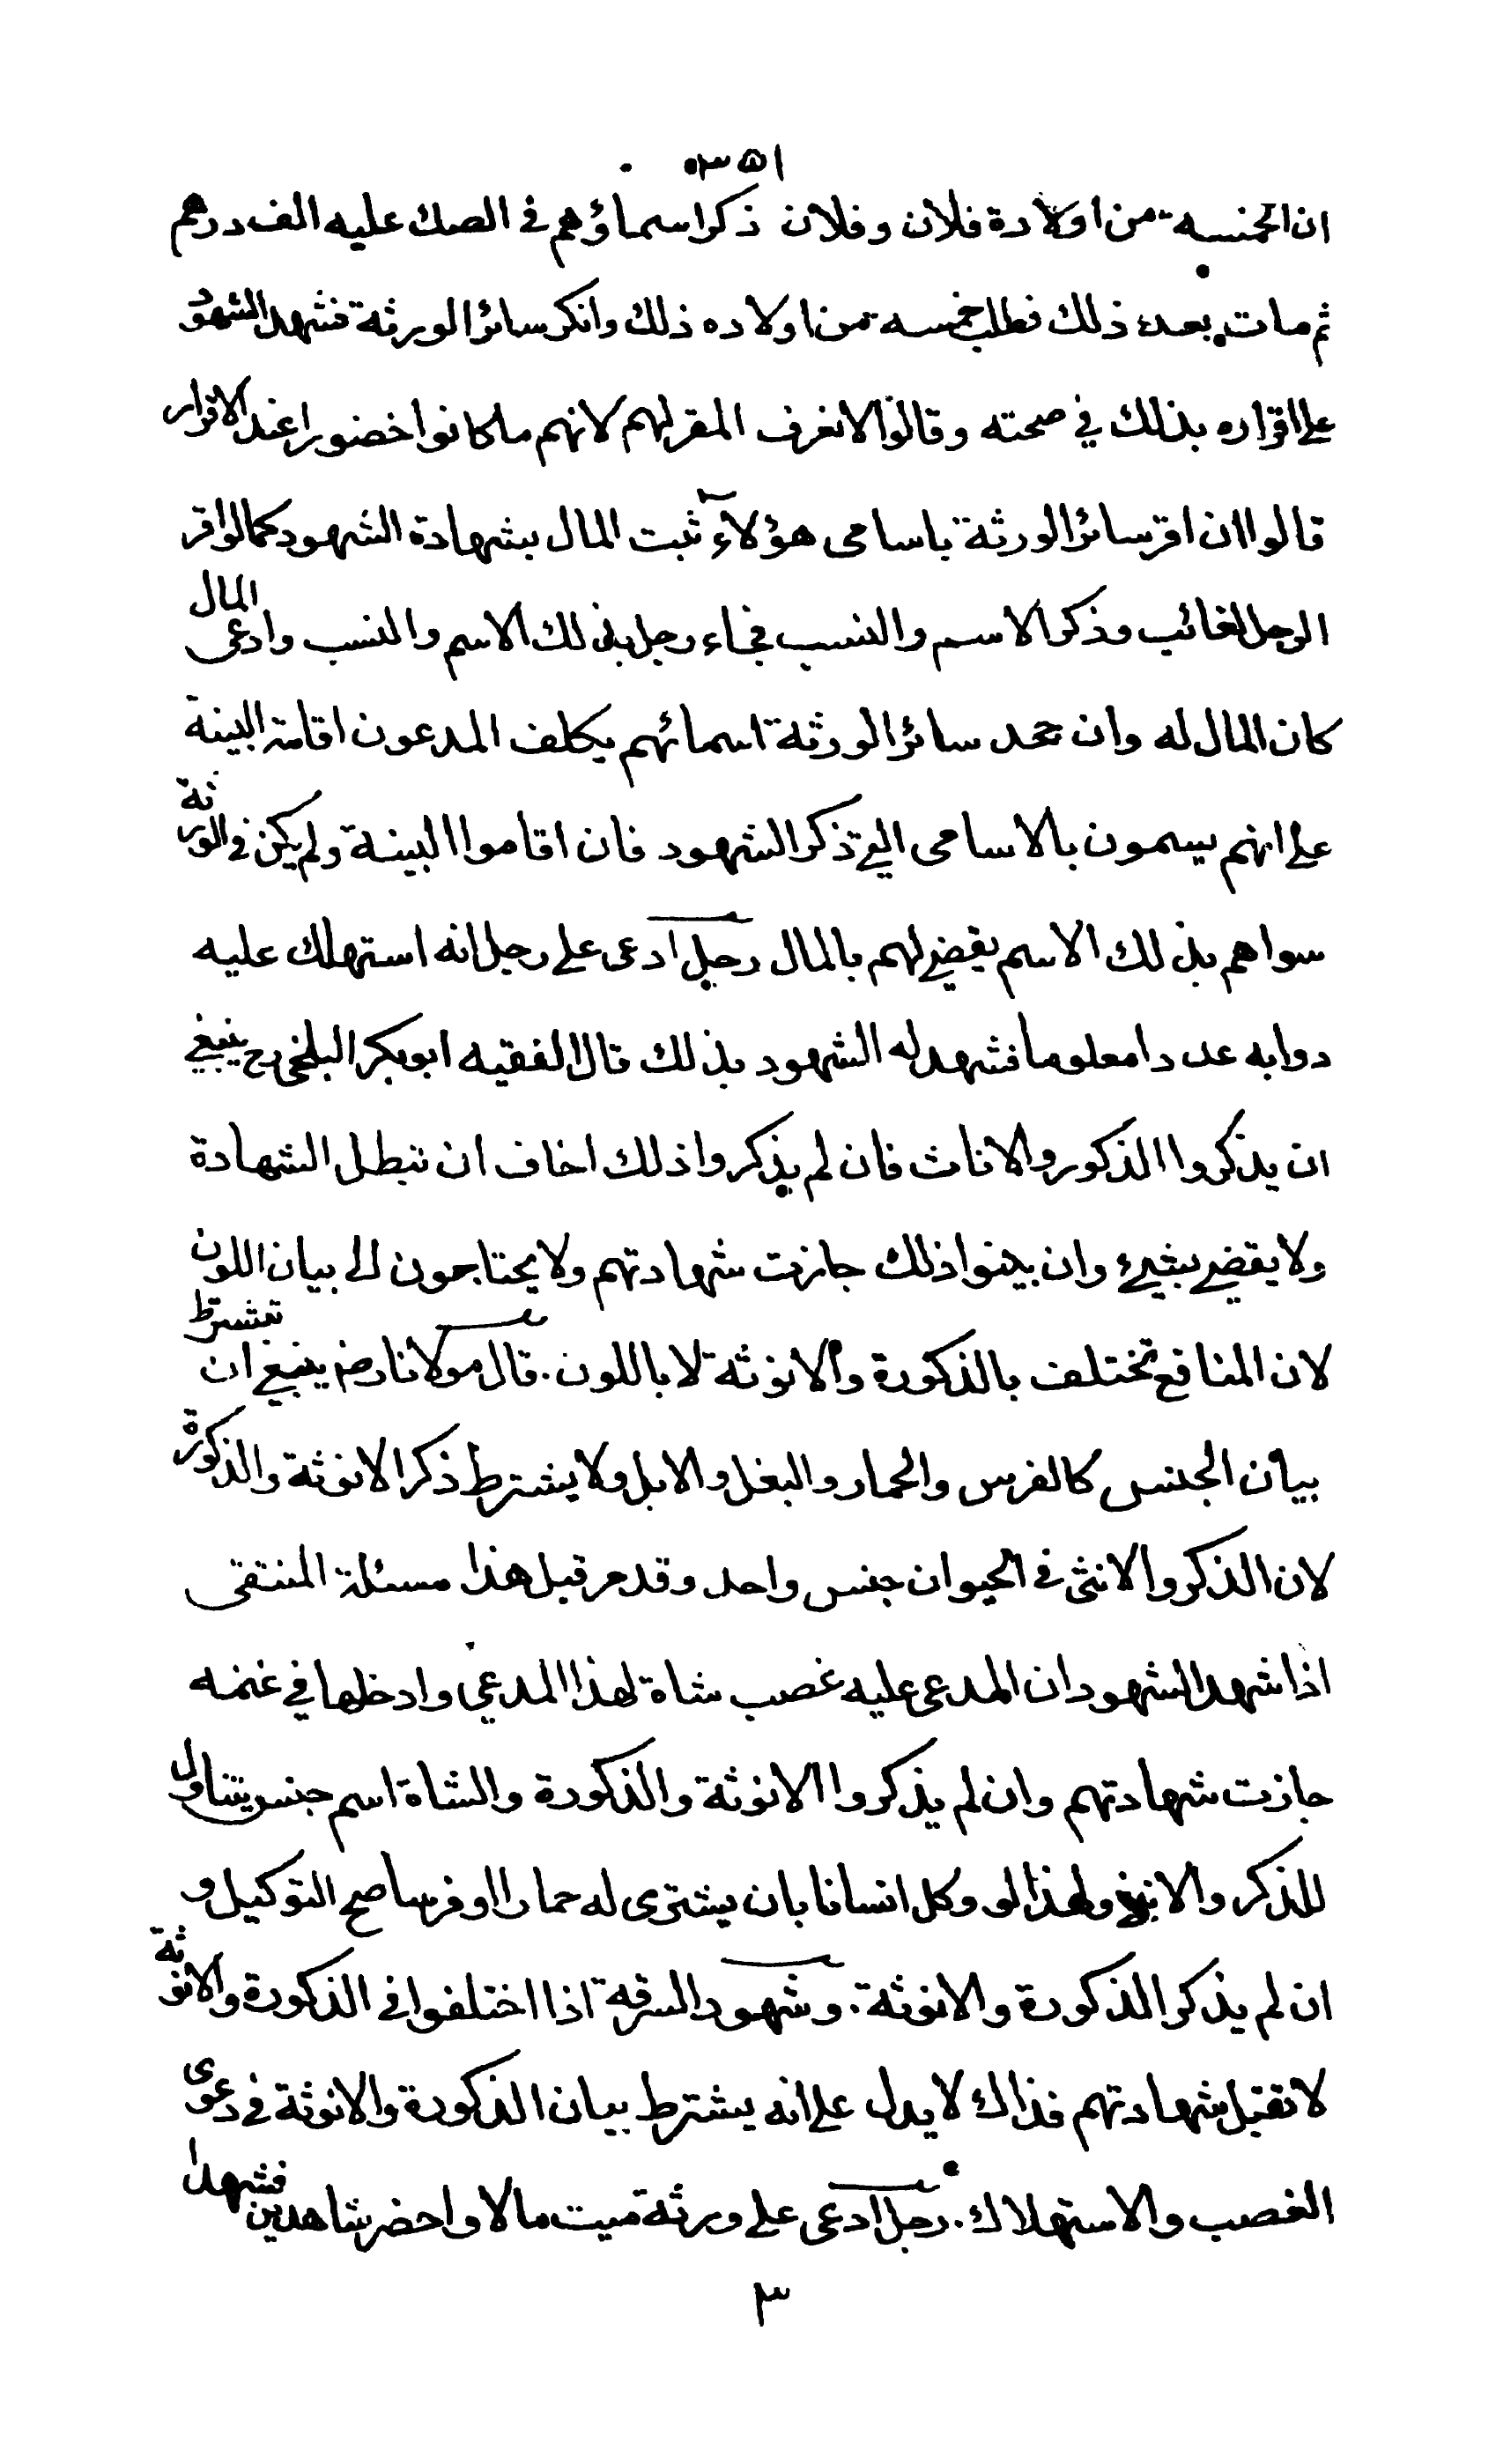 ١٥٣٠
ان لخمسة من اولادة فلان وفلان ذكر اسماؤهم فى الصك عليه الف درهم
ثم مات بعد ذلك فطلب خمسة من اولاده ذلك وانكر سائر الورثة فشهد الشهود
على اقراره بذلك في صحته وقالوا لا نعرف المقر لهم لانهم ما كانوا حضورا عند الاقرار
قالوا ان اقر سائر الورثة باسامى هؤلاء ثبت المال بشهادة الشهود كما لو اقر
الرجل لغائب وذكر الاسم والنسب فجاء رجل بذلك الاسم والنسب وادعى المال
كان المال له وان جحد سائر الورثة اسمائهم يكلف المدعون اقامة البينة
على انهم يسمون بالاسامى التي ذكر الشهود فان اقاموا البينة ولم يكن في الورثة
سواهم بذلك الاسم يقضى لهم بالمال رجل ادعى على رجل انه استهلك عليه
دوابه عددا معلوما فشهد له الشهود بذلك قال الفقيه ابو بكر البلخي رح ينبغي
ان يذكروا الذكور والاناث فان لم يذكروا ذلك اخاف ان تبطل الشهادة
ولا يقضى بشيء وان بينوا ذلك جازت شهادتهم ولا يحتاجون الى بيان اللون
لان المنافع تختلف بالذكورة والانوثة لا باللون. قال مولانا رض ينبغي ان تشترط
بيان الجنس كالفرس والحمار والبغل والابل ولا يشترط ذكر الانوثة والذكورة
لان الذكر والانثى فى الحيوان جنس واحد وقد مر قبل هذا مسئلة المنتقى
اذا شهد الشهود ان المدعى عليه غصب شاة لهذا المدعي وادخلها في غنمه
جازت شهادتهم وان لم يذكروا الانوثة والذكورة والشاة اسم جنس يتناول
للذكر والانثى ولهذا لو وكل انسانا بان يشترى له حمارا او فرسا صح التوكيل و
ان لم يذكر الذكورة والانوثة. وشهود السرقة اذا اختلفوا فى الذكورة والانوثة
لا تقبل شهادتهم فذاك لا يدل على انه يشترط بيان الذكورة والانوثة في دعوى
الغصب والاستهلاك. رجل ادعى على ورثة ميت مالا واحضر شاهدين فشهدا
٣